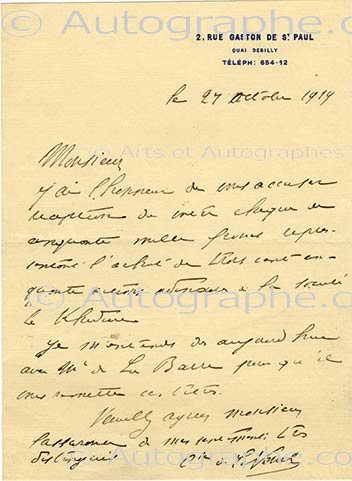 2, RUE GASTON DE St PAUL
QUAI DEBILLY
TÉLÉPH: 654-12
© Autographe.com
le 27 octobre 1919
© Arts et Autographes
Monsieur
j'ai l'honneur de vous accuser
réception de votre chèque de
cinquante mille francs repré-
sentant l'achat de trois cent cin-
quante actions
à la société
le
Je m'entends dès aujourd'hui
avec Mr de La Barre pour qu'il
vous remette ces titres.
Veuillez agréer monsieur
l'assurance de mes sentiments très
distingués
Cte de